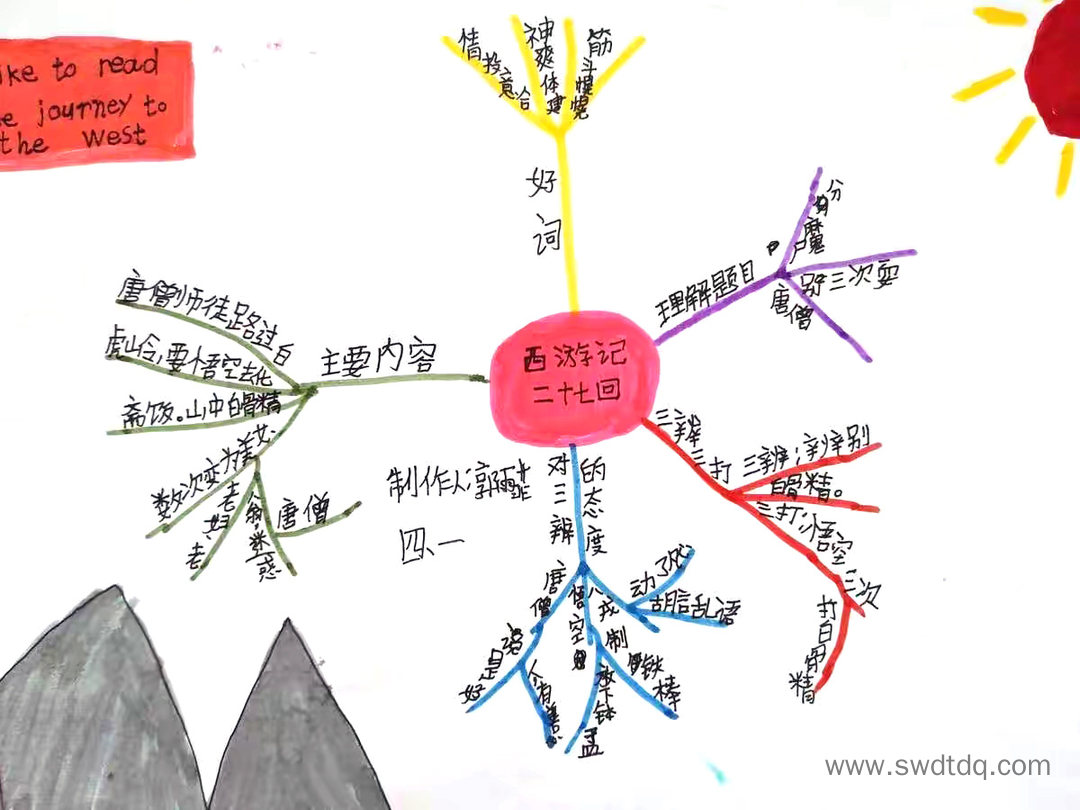 ike to read
e journey to
the West
情投意合
神爽体健
筋斗
好词
理解题目
分
魔
三次耍
唐僧
西游记
二十七回
主要内容
唐僧师徒路过白
虎岭,要悟空去化
斋饭。山中白骨精
数次变为美女
老妇
老
公翁,迷惑
唐僧
制作人:郭
四、一
三辨三打
三辨:辛辛别
白骨精。
三打:悟空三次
打白骨精
对三辨的态度
唐僧
悟空
八戒
动了
胡言乱语
制
铁棒
放下钵盂
好
人有善
www.swdtdq.com